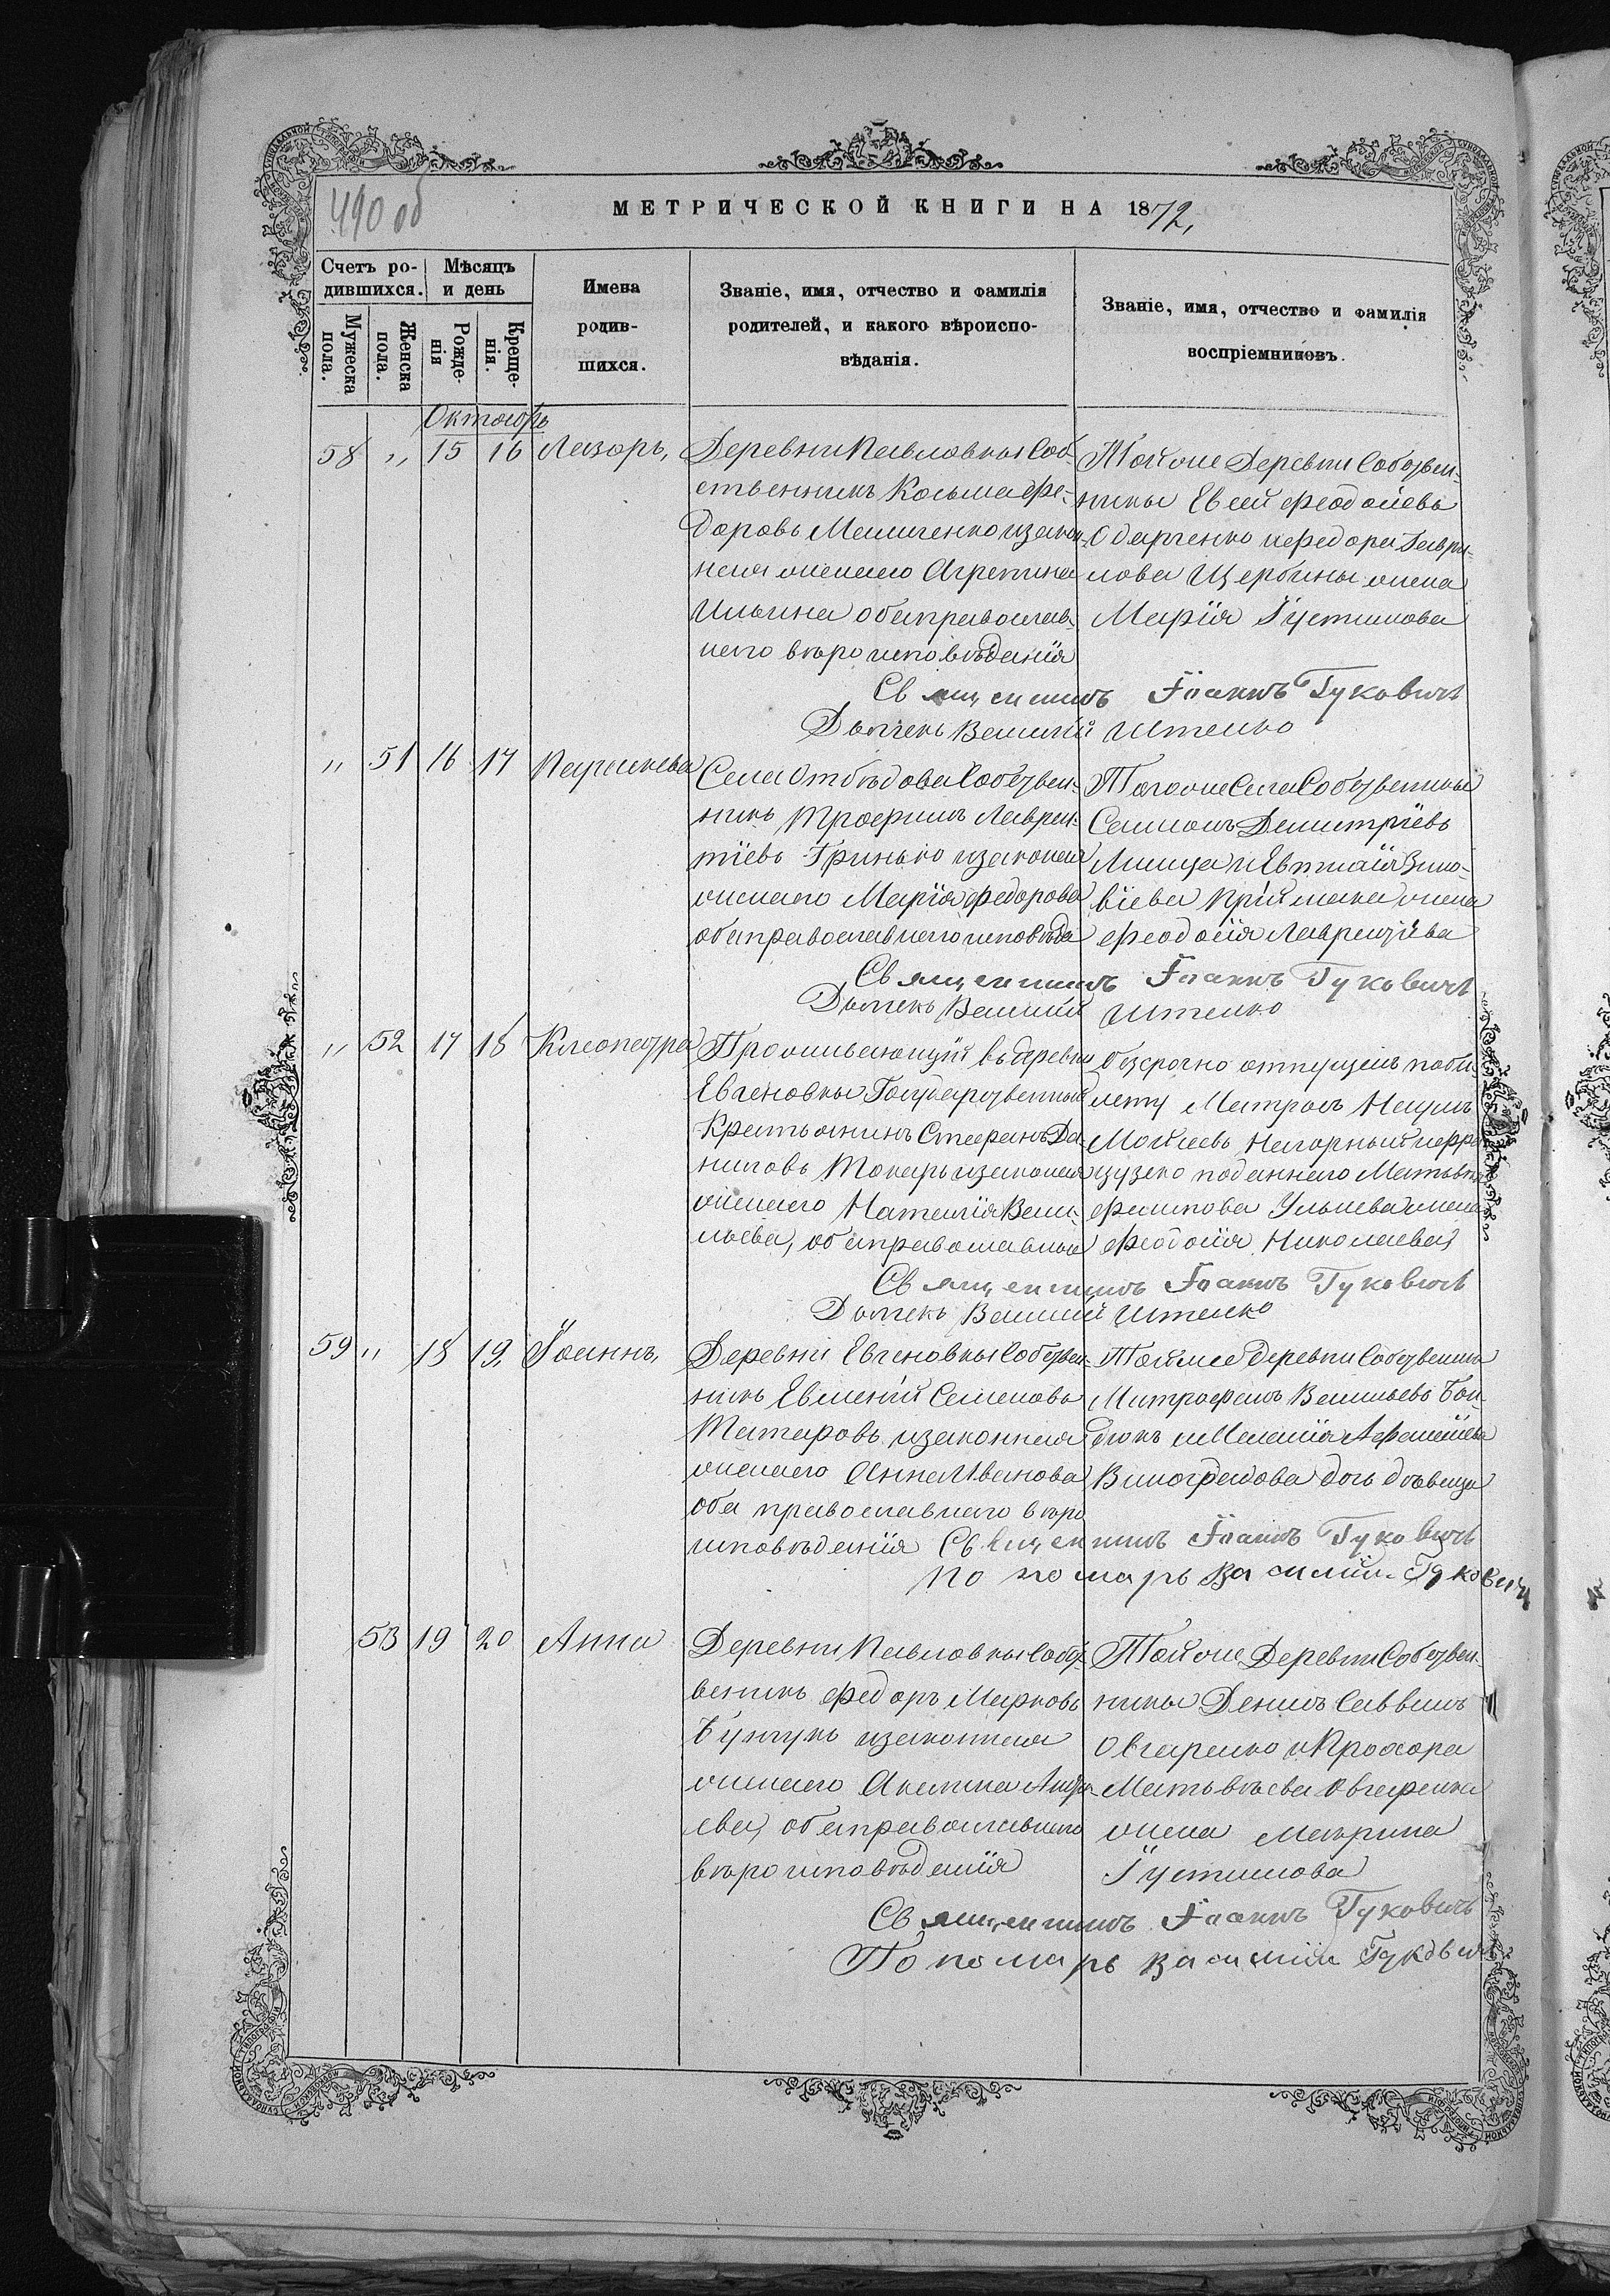 490 об
МЕТРИЧЕСКОЙ КНИГИ НА 1872,
Счетъ ро-
дившихся.
Мѣсяцъ
и день
Мужеска
пола.
Женска
пола.
Рожде-
нія
Креще-
нія.
Имена
родив-
шихся.
Званіе, имя, отчество и фамилія
родителей, и какого вѣроиспо-
вѣданія.
Званіе, имя, отчество и фамилія
воспріемниковъ.
Октябрь
58 " 15 16 Лазорь,
Деревни Павловки Соб-
ственникъ Косьма Фе-
доровъ Мамченко изакон-
ная жена его Агрепина
Ильина оба православ-
наго вѣроисповѣданія
Той же Деревни Собствен-
ники Евсей Феодосіевъ
Одарченко и Федора Гаври-
лова Щербины жена
Марія Іустинова
Священникъ Іоаннъ Гуковичъ
Дьячекъ Василій Ительно
" 51 16 17 Параскева
Села Отбѣдова Собствен-
никъ Трофимъ Лаврен-
тіевъ Гринько изаконная
жена его Марія Федорова
оба православнаго исповѣда
Того же Села Собственники
Самсонъ Димитріевъ
Лисица и Евтихія Зино-
віева Приймака жена
Феодосія Лаврентіева
Священникъ Іоаннъ Гуковичъ
Дьячекъ Василій Ительно
" 52 17 18 Клеопатра
Проживающій въ деревни
Евгеновки Государственный
Крестьянинъ Стефанъ Да-
ниловъ Токарь изаконная
жена его Наталія Васи-
льева, оба православные
безсрочно отпущенъ поби-
лету Матросъ Наумъ
Мойсеевъ Нагорный и фран
цузско подданнаго Матвѣя
Филипова жена
Феодосія Николаева
Священникъ Іоаннъ Гуковичъ
Дьячекъ Василій Ительно
59 " 18 19, Іоаннъ,
Деревни Евгеновки Собствен-
никъ Евменій Семеновъ
Татаровъ изаконная
жена его Анна Иванова
оба православнаго вѣро
исповѣданія
Той же деревни Собственники
Митрофанъ Васильевъ Бон-
дюкъ и Меланія Афанасіева
Виноградова дочь дѣвица
Священникъ Іоаннъ Гуковичъ
Пономарь Василій Гуковичъ
53 19 20 Анна
Деревни Павловки Собст-
веникъ Федоръ Марковъ
Бунчукъ изаконная
жена его Акилина Андре-
ева, оба православнаго
вѣроисповѣданія
Той же Деревни Собствен-
ники Денисъ Саввинъ
Овчаренко и Прохора
Матвѣева Овчаренка
жена Макрина
Іустинова
Священникъ Іоаннъ Гуковичъ
Пономарь Василій Гуковичъ